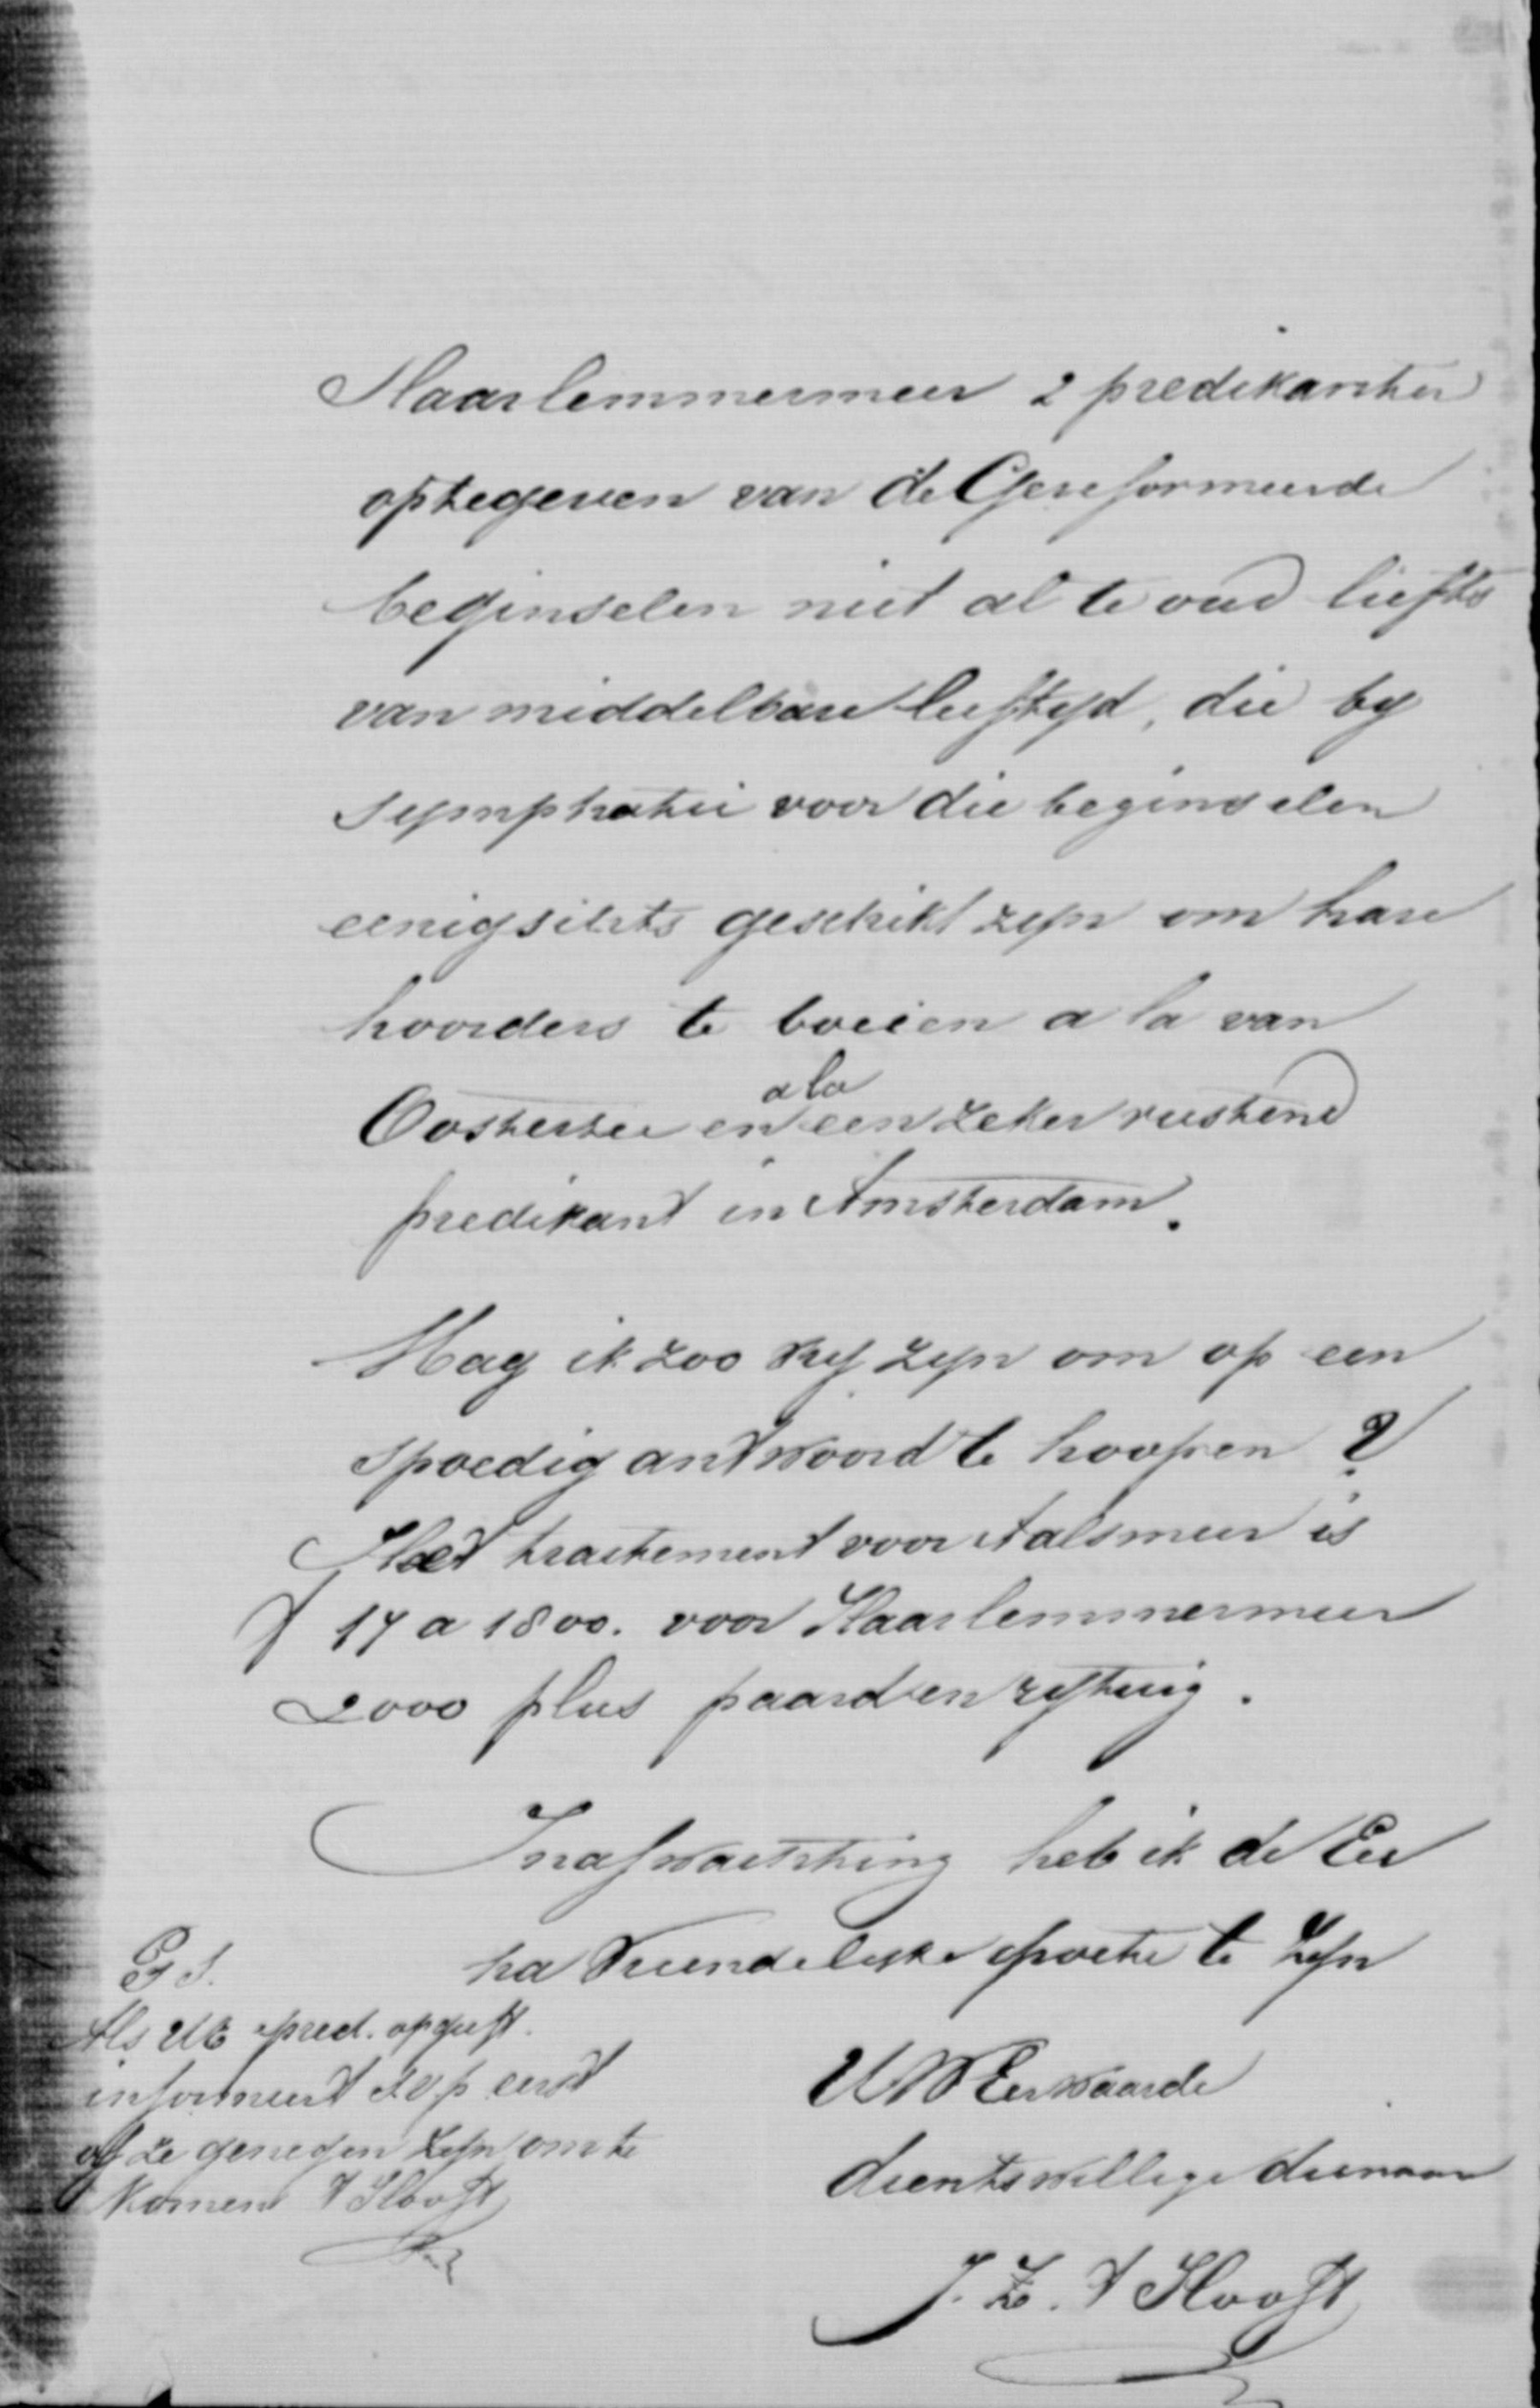 Haarlemmermeer 2 predikanten
optegeven van de Gereformeerde
beginselen niet al te oud liefts
van middelbare leeftyd, die by
symphatie voor die beginselen
eenigsints geschikt zyn om hare
hoorders te boeien a la van
Oosterzee en a la een zeker rustend
predikant in Amsterdam.
Mag ik zoo vry zyn om op een
spoedig antwoord te hoopen ?
Het tractement voor Aalsmeer is
f 17 a 1800. voor Haarlemmermeer
2000 plus paard en rytuig.
In afwachting heb ik de Eer
na Vriendelyke groete te zyn
UWEerwaarde
dientswillige dienaar
J. Z. 't Hooft
P S.
Als UE pred. opgeeft.
informeert svp eerst
of ze genegen zyn om te
komen 't Hooft